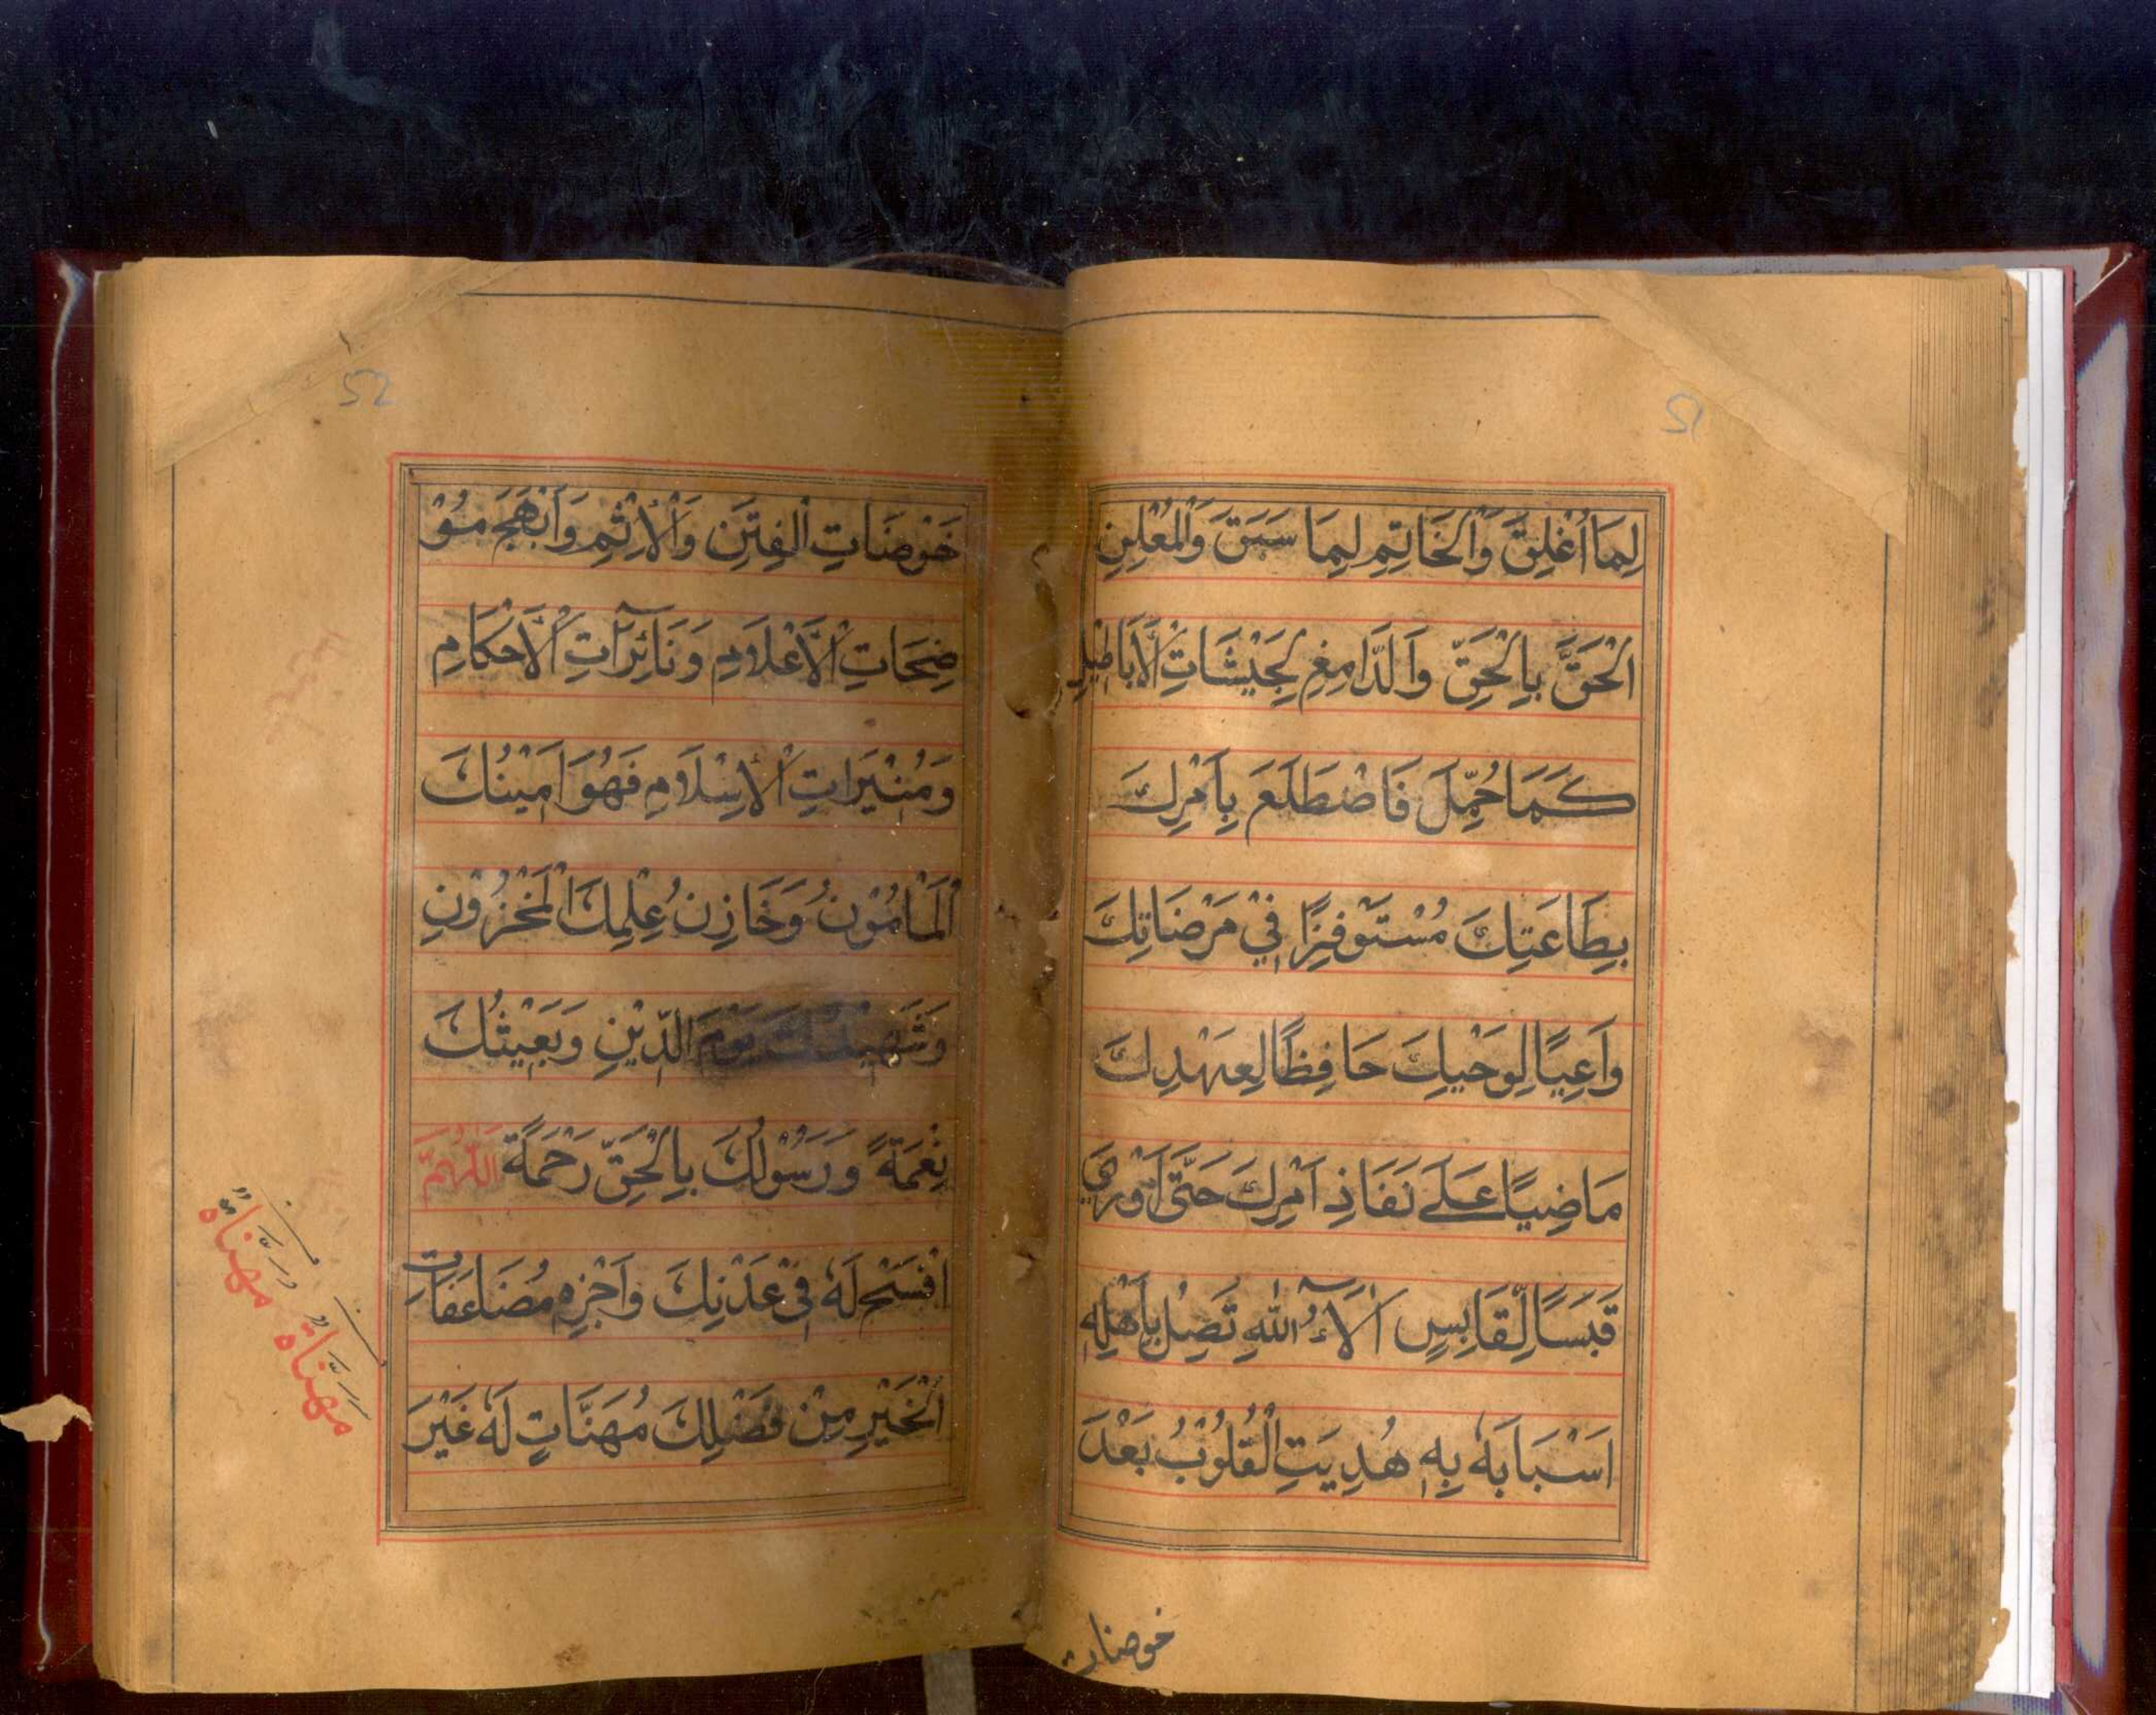 51
لِمَا اُغْلِقَ وَالْخَاتِمِ لِمَا سَبَقَ وَالْمُعْلِنِ
الْحَقَّ بِالْحَقِّ وَالدَّامِغِ لِجَيْشَاتِ الْاَبَاطِيْلِ
كَمَا حُمِّلَ فَاضْطَلَعَ بِاَمْرِكَ
بِطَاعَتِكَ مُسْتَوْفِزًا فِيْ مَرْضَاتِكَ
وَاعِيًا لِوَحْيِكَ حَافِظًا لِعَهْدِكَ
مَاضِيًا عَلٰے نَفَاذِ اَمْرِكَ حَتّٰى اَوْرٰي
قَبَسًا لِّقَابِسٍ اٰلَآءُ اللّٰهِ تَصِلُ بِاَهْلِهٖ
اَسْبَابَهٗ بِهٖ هُدِيَتِ الْقُلُوْبُ بَعْدَ
خوضات
52
خَوْضَاتِ الْفِتَنِ وَالْاِثْمِ وَاَبْهَجَ مُوْ
ضِحَاتِ الْاَعْلَامِ وَنَائِرَاتِ الْاَحْكَامِ
وَمُنِيْرَاتِ الْاِسْلَامِ فَهُوَ اَمِيْنُكَ
الْمَامُوْنُ وَخَازِنُ عِلْمِكَ الْمَخْزُوْنِ
وَشَهِيْدُكَ يَوْمَ الدِّيْنِ وَبَعِيْثُكَ
نِعْمَةً وَرَسُوْلُكَ بِالْحَقِّ رَحْمَةً اَللّٰهُمَّ
افْسَحْ لَهٗ فِيْ عَدْنِكَ وَاجْزِهٖ مُضَاعَفَاتِ
الْخَيْرِ مِنْ فَضْلِكَ مُهَنَّاتٍ لَهٗ غَيْرَ
مهناة
مهناة